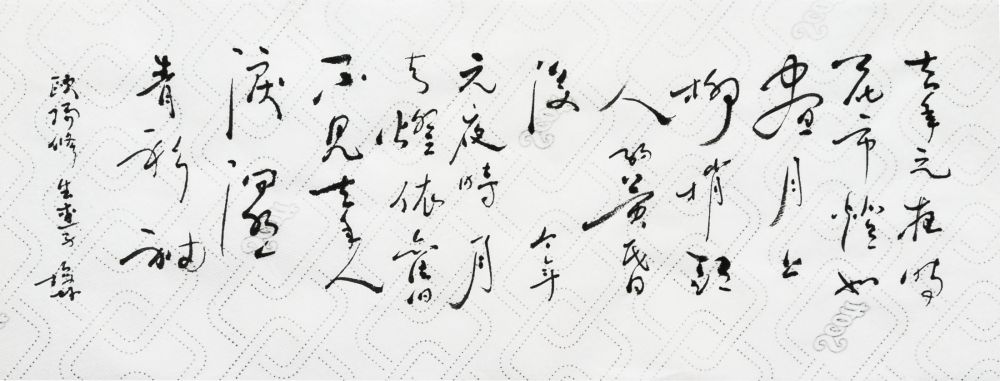 去年元夜時
花市燈如
晝月上
柳梢頭
人約黃昏
後 今年
元夜時月
与燈依舊
不見去年人
淚濕
青衫袖
歐陽修 生查子